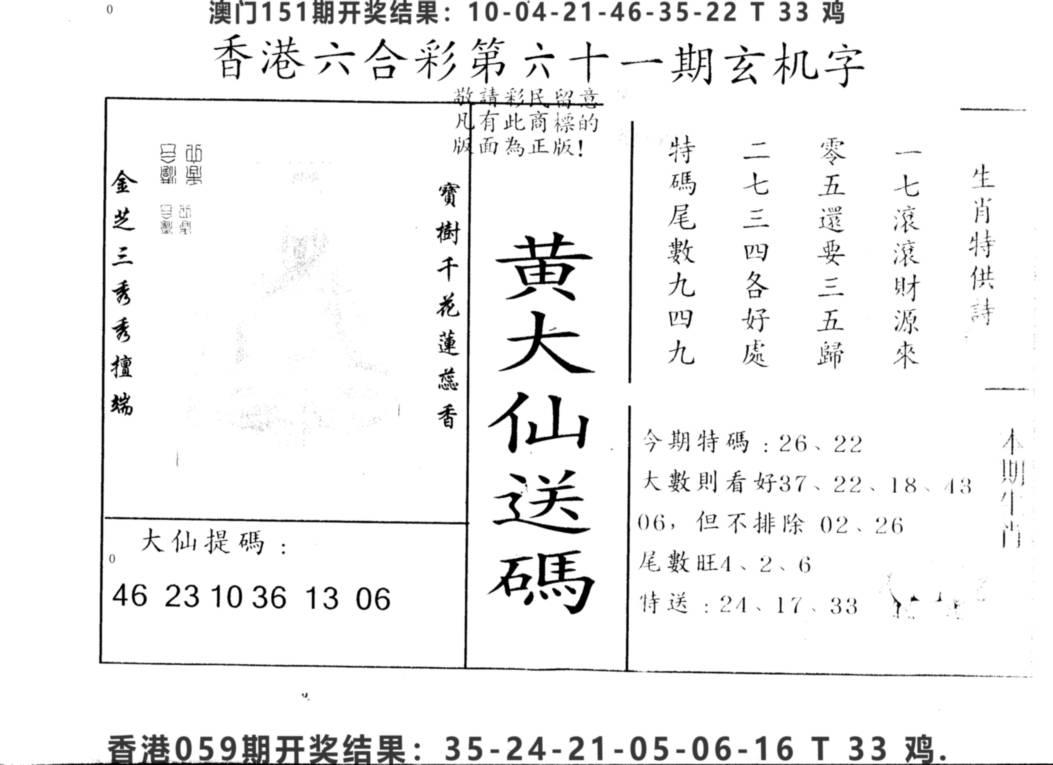 澳门151期开奖结果：10-04-21-46-35-22 T 33 鸡
香港六合彩第六十一期玄机字
敬請彩民留意
凡有此商標的
版面為正版!
生肖特供詩
一七滾滾財源來
零五還要三五歸
二七三四各好處
特碼尾數九四九
黄大仙送碼
寶樹千花蓮蕊香
金芝三秀秀擅端
大仙提碼：
46 23 10 36 13 06
本期生肖
今期特碼：26、22
大數則看好37、22、18、43
06，但不排除 02、26
尾數旺4、2、6
特送：24、17、33
香港059期开奖结果：35-24-21-05-06-16 T 33 鸡.